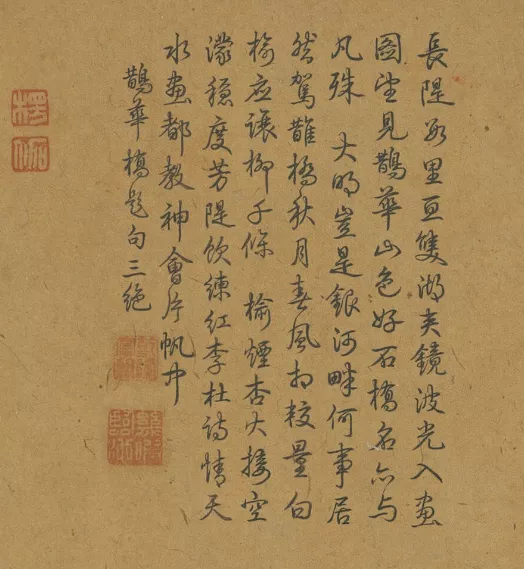 長隄數里亘雙湖夾鏡波光入畫
圖望見鵲華山色好石橋名亦與
凡殊 大明豈是銀河畔何事居
然駕鵲橋秋月春風相較量白
榆應讓柳千條 榆煙杏火接空
濛穩度芳隄飲練紅李杜詩情天
水畫都教神會片帆中
鵲華橋題句三絕